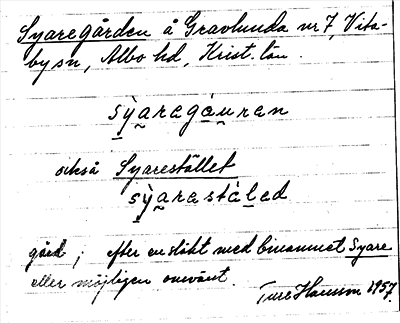 Syaregården å Gravlunda nr 7, Vita-
by sn, Albo hd, Krist. län.
sỳaregá̀uren
också Syarestället
sỳarestá̀led
gård; efter en släkt med binamnet Syare
eller möjligen omvänt.
Ture Hansson 1957